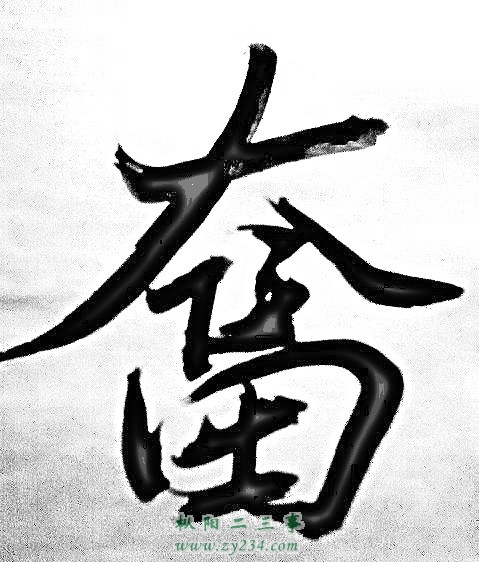 奮
枞阳二三事
www.zy234.com